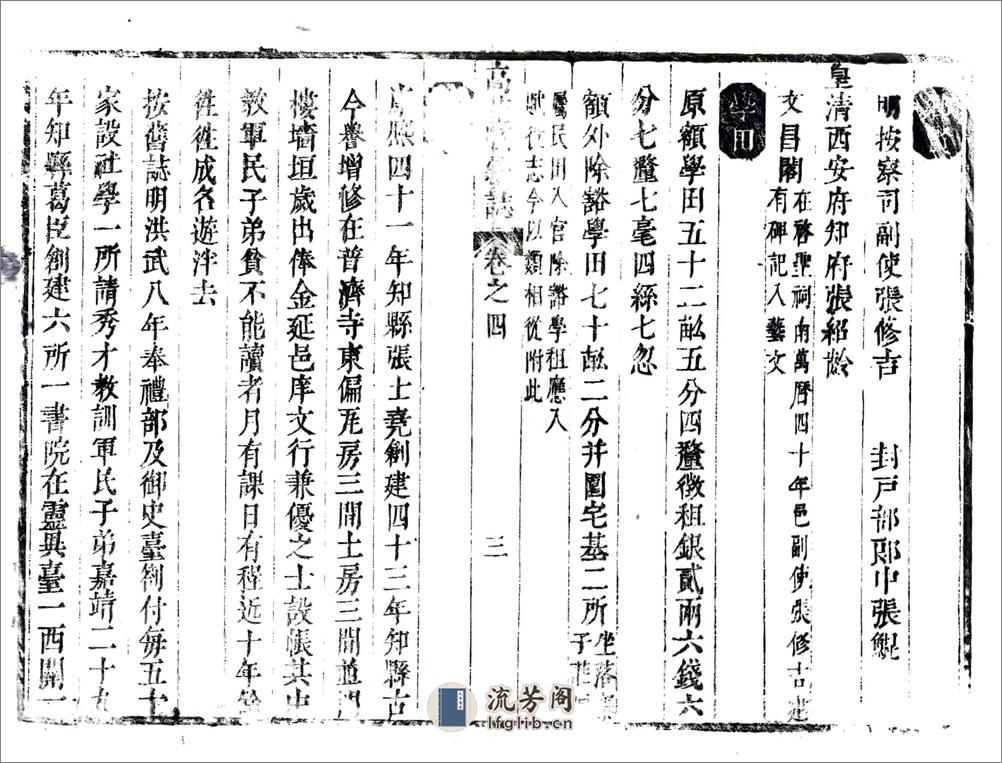 明按察司副使張修吉　封戶部郎中張鯤
皇清西安府知府張紹齡
文昌閣在啓聖祠南萬曆四十年邑副使張修吉建
有碑記入藝文
學田
原額學田五十二畝五分四釐徵租銀貳兩六錢六
分七釐七毫四絲七忽
額外除豁學田七十畝二分并園宅基二所坐落
子
屬民田入官除豁學租應入
賦役志今以類相從附此
誌 卷之四 三
康熙四十一年知縣張士堯創建四十三年知縣古
今譽增修在普濟寺東偏瓦房三間士房三間道門
樓墻垣歲出俸金延邑庠文行兼優之士設帳其中
教軍民子弟貧不能讀者月有課日有程近十年餘
徃徃成名遊泮去
按舊誌明洪武八年奉禮部及御史臺劄付每五十
家設社學一所請秀才教訓軍民子弟嘉靖二十九
年知縣葛臣創建六所一書院在靈興臺一西關一
流芳阁
lfglib.com